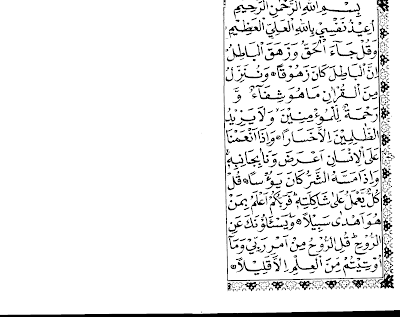 بِسْمِ اللهِ الرَّحْمٰنِ الرَّحِيْمِ
اُعِيْذُ نَفْسِيْ بِاللهِ الْعَلِيِّ الْعَظِيْمِ
وَقُلْ جَآءَ الْحَقُّ وَزَهَقَ الْبَاطِلُ
اِنَّ الْبَاطِلَ كَانَ زَهُوْقًا وَنُنَزِّلُ
مِنَ الْقُرْاٰنِ مَا هُوَ شِفَآءٌ وَّ
رَحْمَةٌ لِّلْمُؤْمِنِيْنَ وَلَا يَزِيْدُ
الظّٰلِمِيْنَ اِلَّا خَسَارًا وَاِذَا اَنْعَمْنَا
عَلَى الْاِنْسَانِ اَعْرَضَ وَنَاٰ بِجَانِبِهٖ
وَاِذَا مَسَّهُ الشَّرُّ كَانَ يَؤُسًا قُلْ
كُلٌّ يَّعْمَلُ عَلٰى شَاكِلَتِهٖ فَرَبُّكُمْ اَعْلَمُ بِمَنْ
هُوَ اَهْدٰى سَبِيْلًا وَيَسْئَلُوْنَكَ عَنِ
الرُّوْحِ قُلِ الرُّوْحُ مِنْ اَمْرِ رَبِّيْ وَمَآ
اُوْتِيْتُمْ مِّنَ الْعِلْمِ اِلَّا قَلِيْلًا